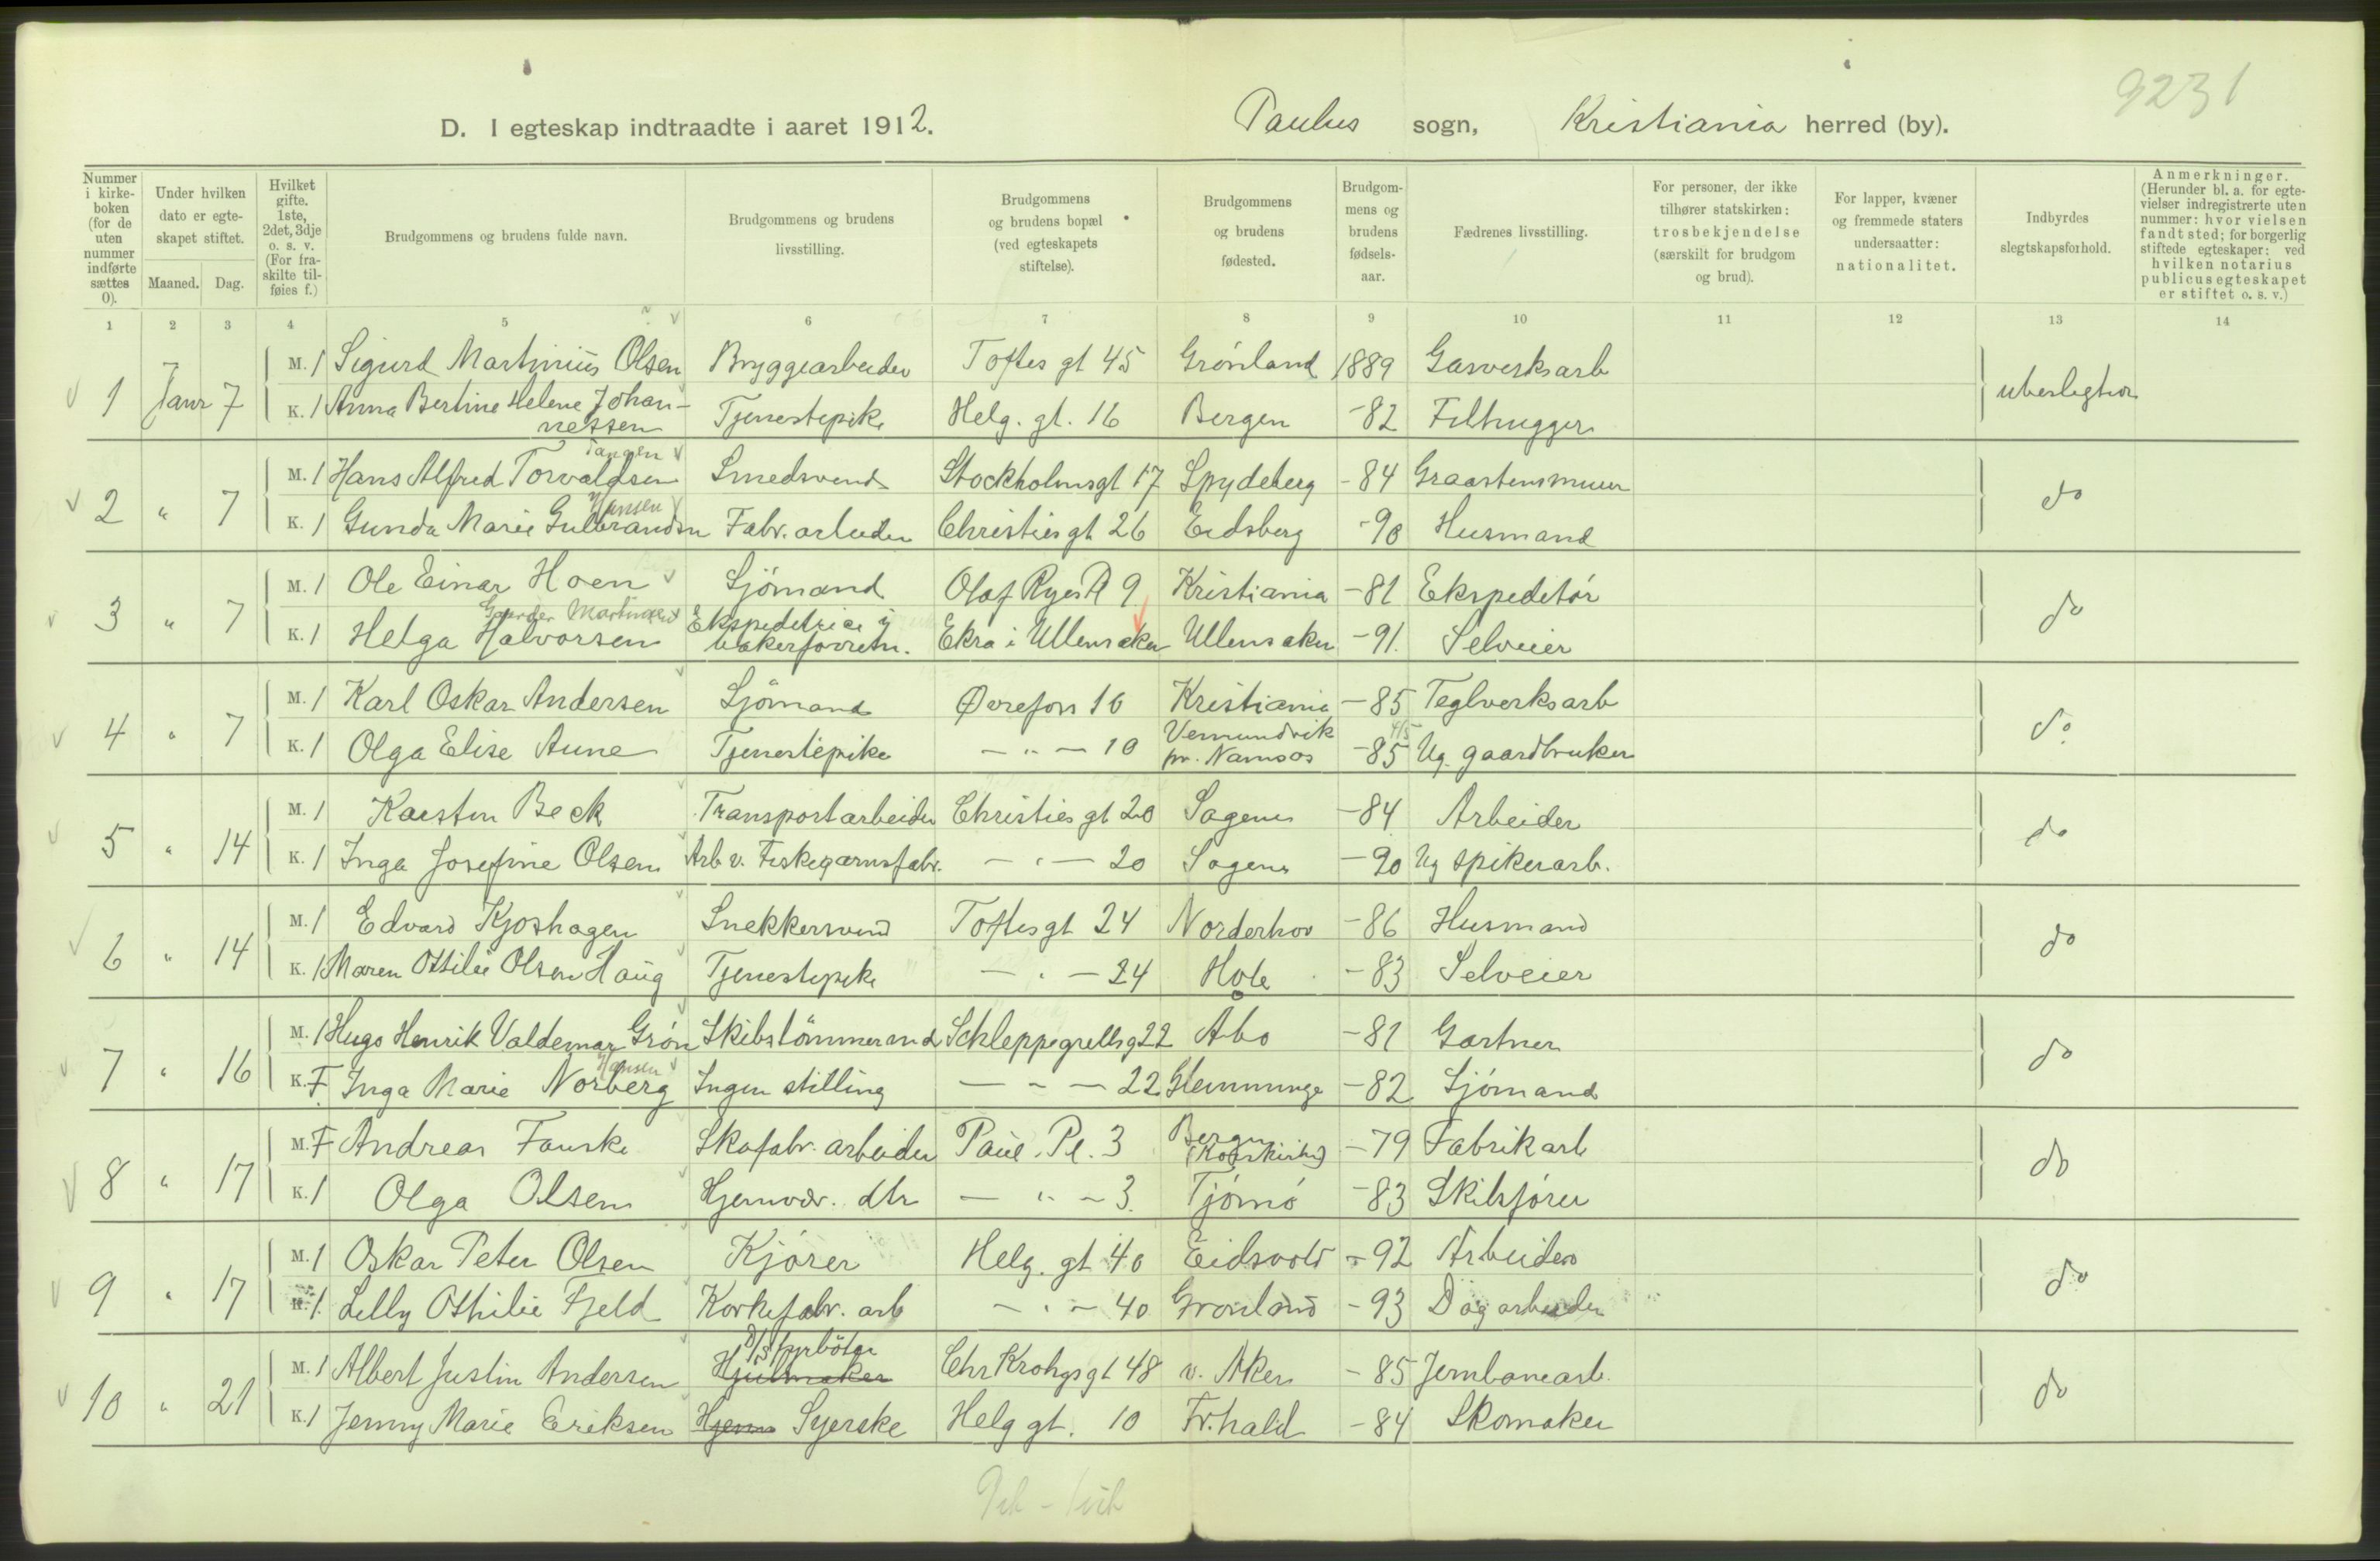 9231
D. I egteskap indtraadte i aaret 1912. Paulus sogn, Kristiania herred (by).
Nummer i kirkeboken (for de uten nummer indførte sættes 0).
Under hvilken dato er egteskapet stiftet.
Maaned. Dag.
Hvilket gifte. 1ste, 2det, 3dje o. s. v. (For fraskilte tilføies f.)
Brudgommens og brudens fulde navn.
Brudgommens og brudens livsstilling.
Brudgommens og brudens bopæl (ved egteskapets stiftelse).
Brudgommens og brudens fødested.
Brudgommens og brudens fødselsaar.
Fædrenes livsstilling.
For personer, der ikke tilhører statskirken: trosbekjendelse (særskilt for brudgom og brud).
For lapper, kvæner og fremmede staters undersaatter: nationalitet.
Indbyrdes slegtskapsforhold.
Anmerkninger. (Herunder bl. a. for egtevielser indregistrerte uten nummer: hvor vielsen fandt sted; for borgerlig stiftede egteskaper: ved hvilken notarius publicus egteskapet er stiftet o. s. v.)
1 2 3 4 5 6 7 8 9 10 11 12 13 14
1 Janr 7 M. 1 Sigurd Martinius Olsen Bryggearbeider Toftes gt 45 Grönland 1889 Gasverksarb ubeslegtede
K. 1 Anna Bertine Helene Johannessen Tjenestepike Helg. gt. 16 Bergen -82 Filhugger
Tangen
2 " 7 M. 1 Hans Alfred Torvaldsen Smedsvend Stockholmsgt 17 Spydeberg -84 Graastensmurer do
Hansen
K. 1 Gunda Marie Gulbrandsen Fabr. arbeider Christies gt 26 Eidsberg -90 Husmand
3 " 7 M. 1 Ole Einar Hoen Sjömand Olaf Ryes Pl 9 Kristiania -81 Ekspeditör do
Martinsen
K. 1 Helga Halvorsen Ekspeditrice i bakerforretn. Ekra i Ullensaker Ullensaker -91 Selveier
4 " 7 M. 1 Karl Oskar Andersen Sjömand Øvrefoss 10 Kristiania -85 Teglverksarb do
4/5
K. 1 Olga Elise Aune Tjenestepike — " — 10 Vemundvik pr. Namsos -85 Ug. gaardbruker
5 " 14 M. 1 Karsten Beck Transportarbeider Christies gt 20 Sagene -84 Arbeider do
K. 1 Inga Josefine Olsen Arb v. Fiskegarnsfabr. — " — 20 Sagene -90 Ug spikerarb.
6 " 14 M. 1 Edvard Kjoshagen Snekkersvend Toftes gt 24 Norderhov -86 Husmand do
K. 1 Maren Ottilie Olsen Haug Tjenestepike — " — 24 Hole -83 Selveier
7 " 16 M. 1 Hugo Henrik Valdemar Grön Skibstömmermand Schleppegrellsg 22 Åbo -81 Gartner do
Hansen
K. F. Inga Marie Norberg Ingen stilling — " — 22 Glemminge -82 Sjömand
8 " 17 M. F Andreas Fauske Skofabr. arbeider Paul. Pl. 3 Bergen (Korskirke) -79 Fabrikarb do
K. 1 Olga Olsen Hjemvær. dtr — " — 3. Tjömö -83 Skibsförer
9 " 17 M. 1 Oskar Peter Olsen Kjörer Helg. gt 40 Eidsvold -92 Arbeider do
K. 1 Lilly Othilie Fjeld Korkefabr. arb — " — 40 Grønland -93 Dagarbeider
D/S fyrböter
10 " 21 M. 1 Albert Justin Andersen Hjulmaker Chr Krohgs gt 48 v. Aker -85 Jernbanearb. do
K. 1 Jenny Marie Eriksen Hjem Syerske Helg gt. 10 Fr.hald -84 Skomaker